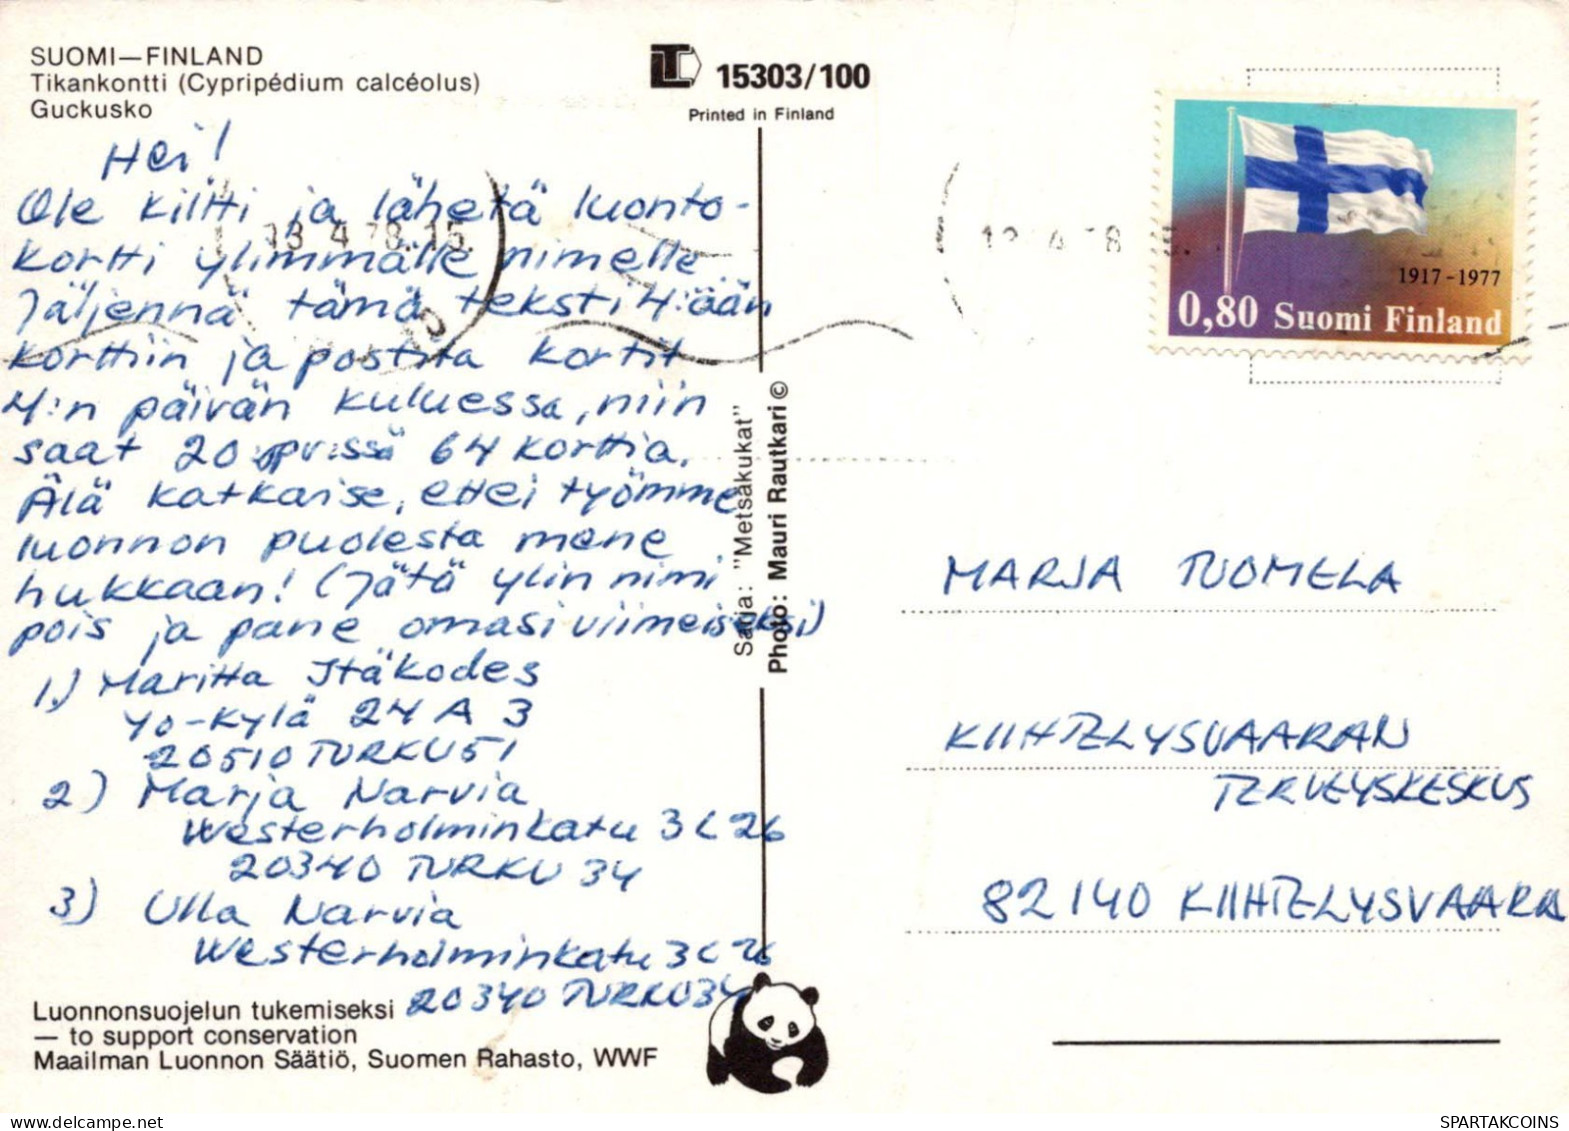 SUOMI—FINLAND
Tikankontti (Cypripédium calcéolus)
Guckusko
LTC 15303/100
Printed in Finland
Hei!
Ole kiltti ja lähetä luonto-
kortti ylimmälle nimelle
Jäljennä tämä teksti 4:ään
korttiin ja postita kortit
4:n päivän kuluessa, niin
saat 20 pv:ssä 64 korttia.
Älä katkaise, ettei työmme
luonnon puolesta mene
hukkaan! (Jätä ylin nimi
pois ja pane omasi viimeiseksi)
1.) Maritta Itäkodes
Yo-kylä 24 A 3
20510 TURKU 51
2) Marja Narvia
Westerholminkatu 3 C 26
20340 TURKU 34
3) Ulla Narvia
Westerholminkatu 3 C 26
20340 TURKU 34
Luonnonsuojelun tukemiseksi
— to support conservation
Maailman Luonnon Säätiö, Suomen Rahasto, WWF
Sarja: "Metsäkukat"
Photo: Mauri Rautkari ©
13.4.78.15.
1917-1977
0,80 Suomi Finland
MARJA TUOMELA
KIIHTELYSVAARAN
TERVEYSKESKUS
82140 KIIHTELYSVAARA
SPARTAKCOINS